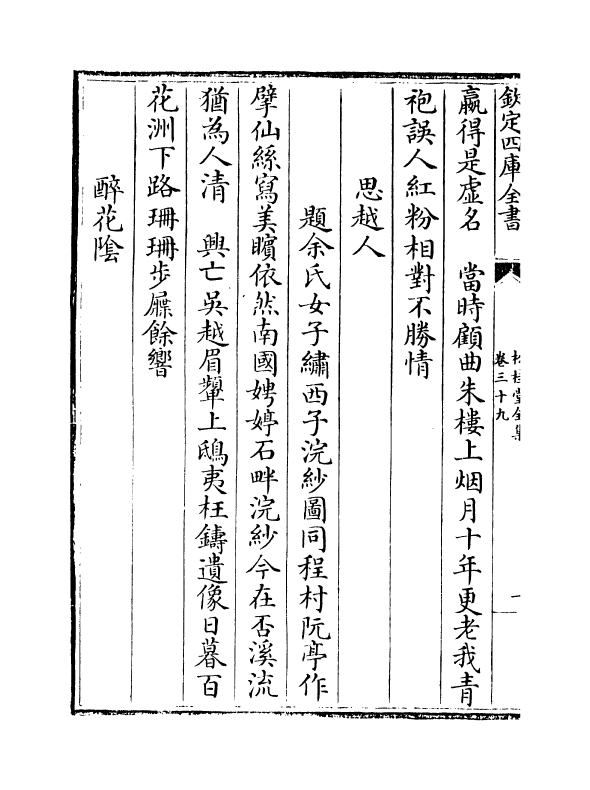 欽定四庫全書
松桂堂全集
卷三十九
一
贏得是虛名　當時顧曲朱樓上烟月十年更老我青
袍誤人紅粉相對不勝情
思越人
題余氏女子繡西子浣紗圖同程村阮亭作
擘仙絲寫美矉依然南國娉婷石畔浣紗今在否溪流
猶為人清　興亡吳越眉顰上鴟夷枉鑄遺像日暮百
花洲下路珊珊步屧餘響
醉花陰